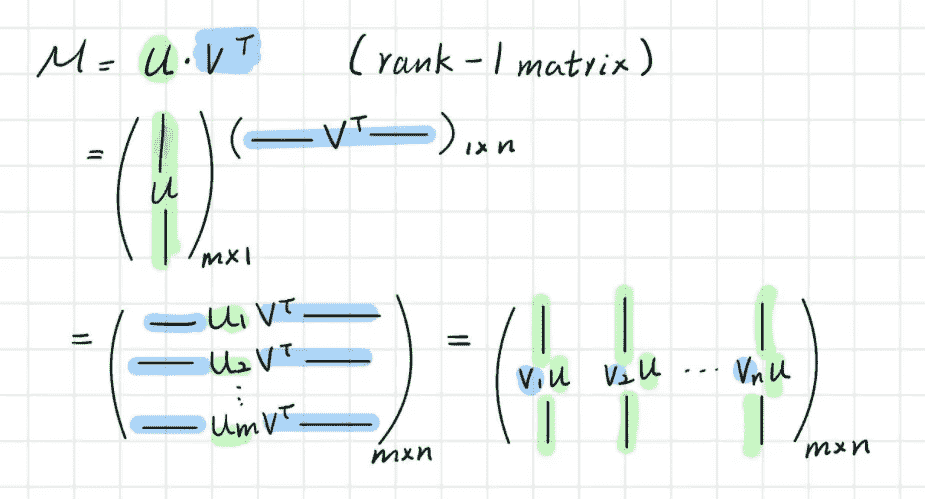 M = u · v^T (rank-1 matrix)
= ( | u | )_{m×1} ( — v^T — )_{1×n}
= ( — u_1 v^T — — u_2 v^T — ⋮ — u_m v^T — )_{m×n} = ( | v_1 u | | v_2 u | ⋯ | v_n u | )_{m×n}